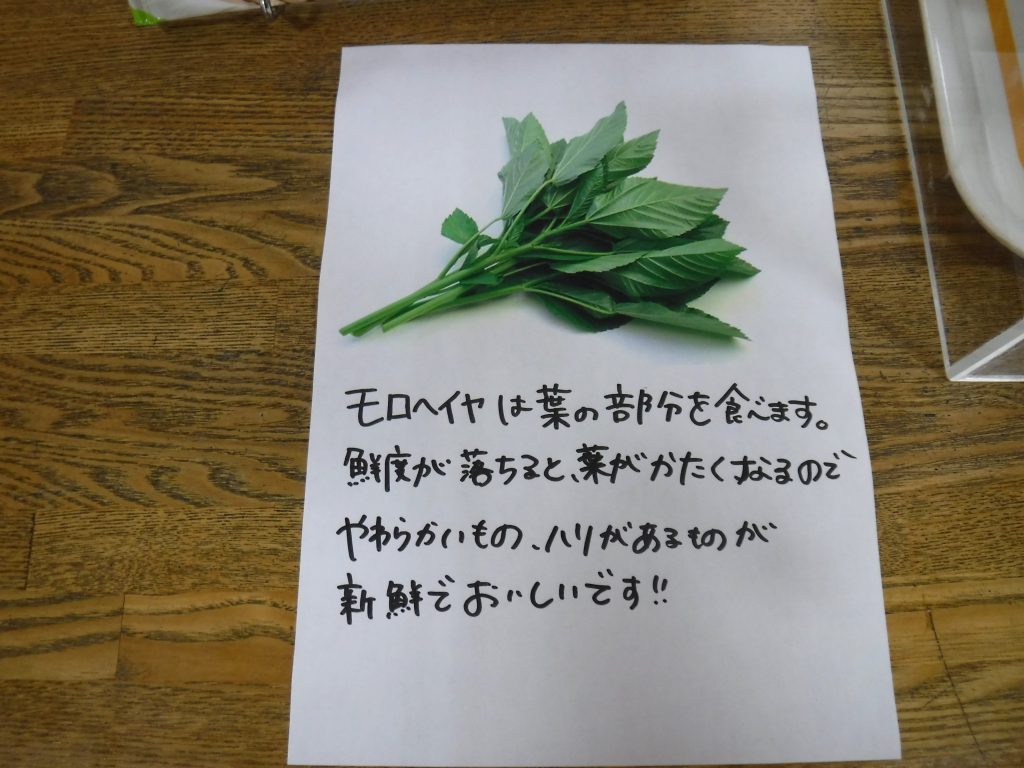 モロヘイヤは葉の部分を食べます。
鮮度が落ちると、葉がかたくなるので
やわらかいもの、ハリがあるものが
新鮮でおいしいです!!